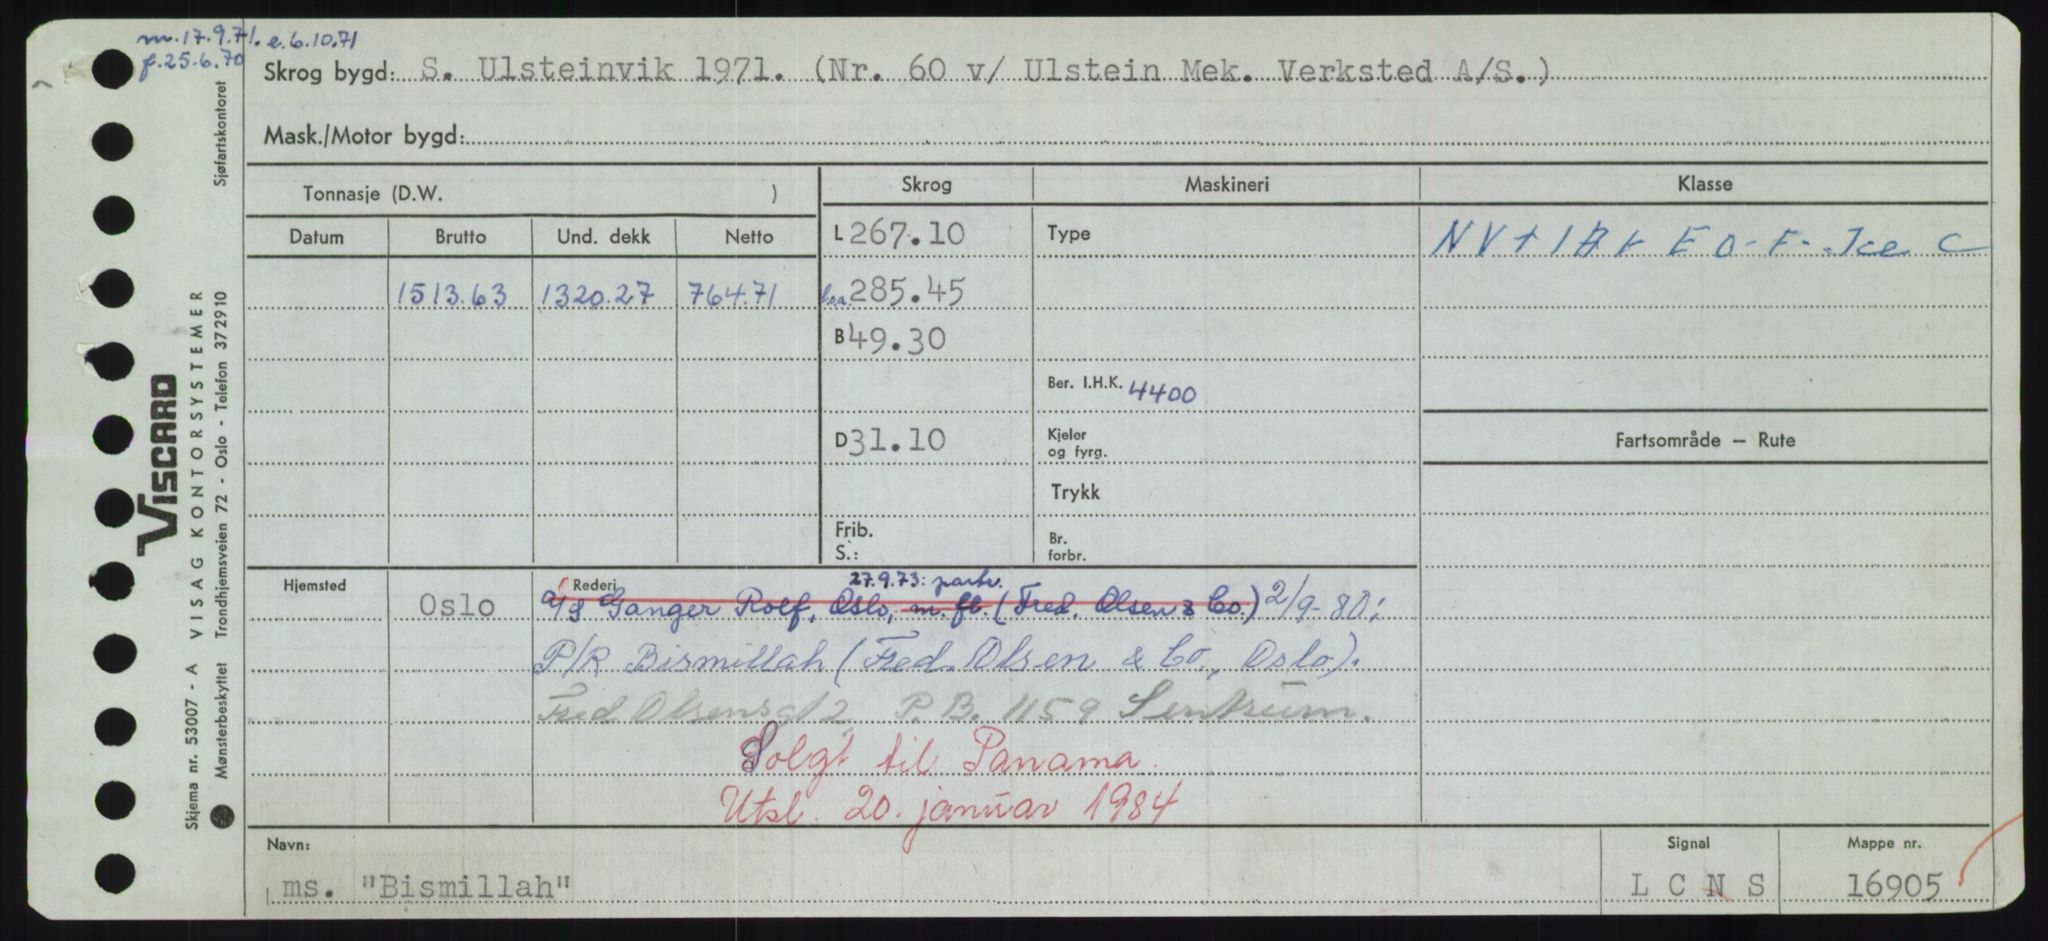 m. 17.9.71. e. 6.10.71
f. 25.6.70
Skrog bygd: S. Ulsteinvik 1971. (Nr. 60 v/ Ulstein Mek. Verksted A/S.)
Mask./Motor bygd:
Tonnasje (D.W. )
Datum Brutto Und. dekk Netto
1513.63 1320.27 764.71
Skrog Maskineri Klasse
L 267.10 Type
285.45
B 49.30
Ber. I.H.K. 4400
D 31.10 Kjeler
og fyrg.
Trykk
Frib. Br.
S.: forbr.
NV + 1A E O-F-Ice C
Fartsområde – Rute
Hjemsted Oslo
Rederi 27.9.73: partr.
A/S Ganger Rolf, Oslo, m. fl. (Fred. Olsen & Co.) 2/9-80:
P/R Bismillah (Fred. Olsen & Co., Oslo).
Fred Olsensgt 2, P.B. 1159 Sentrum.
Solgt til Panama.
Utsl. 20. januar 1984
Navn: Signal Mappe nr.
ms. "Bismillah" L C N S 16905
VISCARD
Skjema nr. 53007 - A VISAG KONTORSYSTEMER
Mønsterbeskyttet Trondhjemsveien 72 - Oslo - Telefon 372910 Sjøfartskontoret